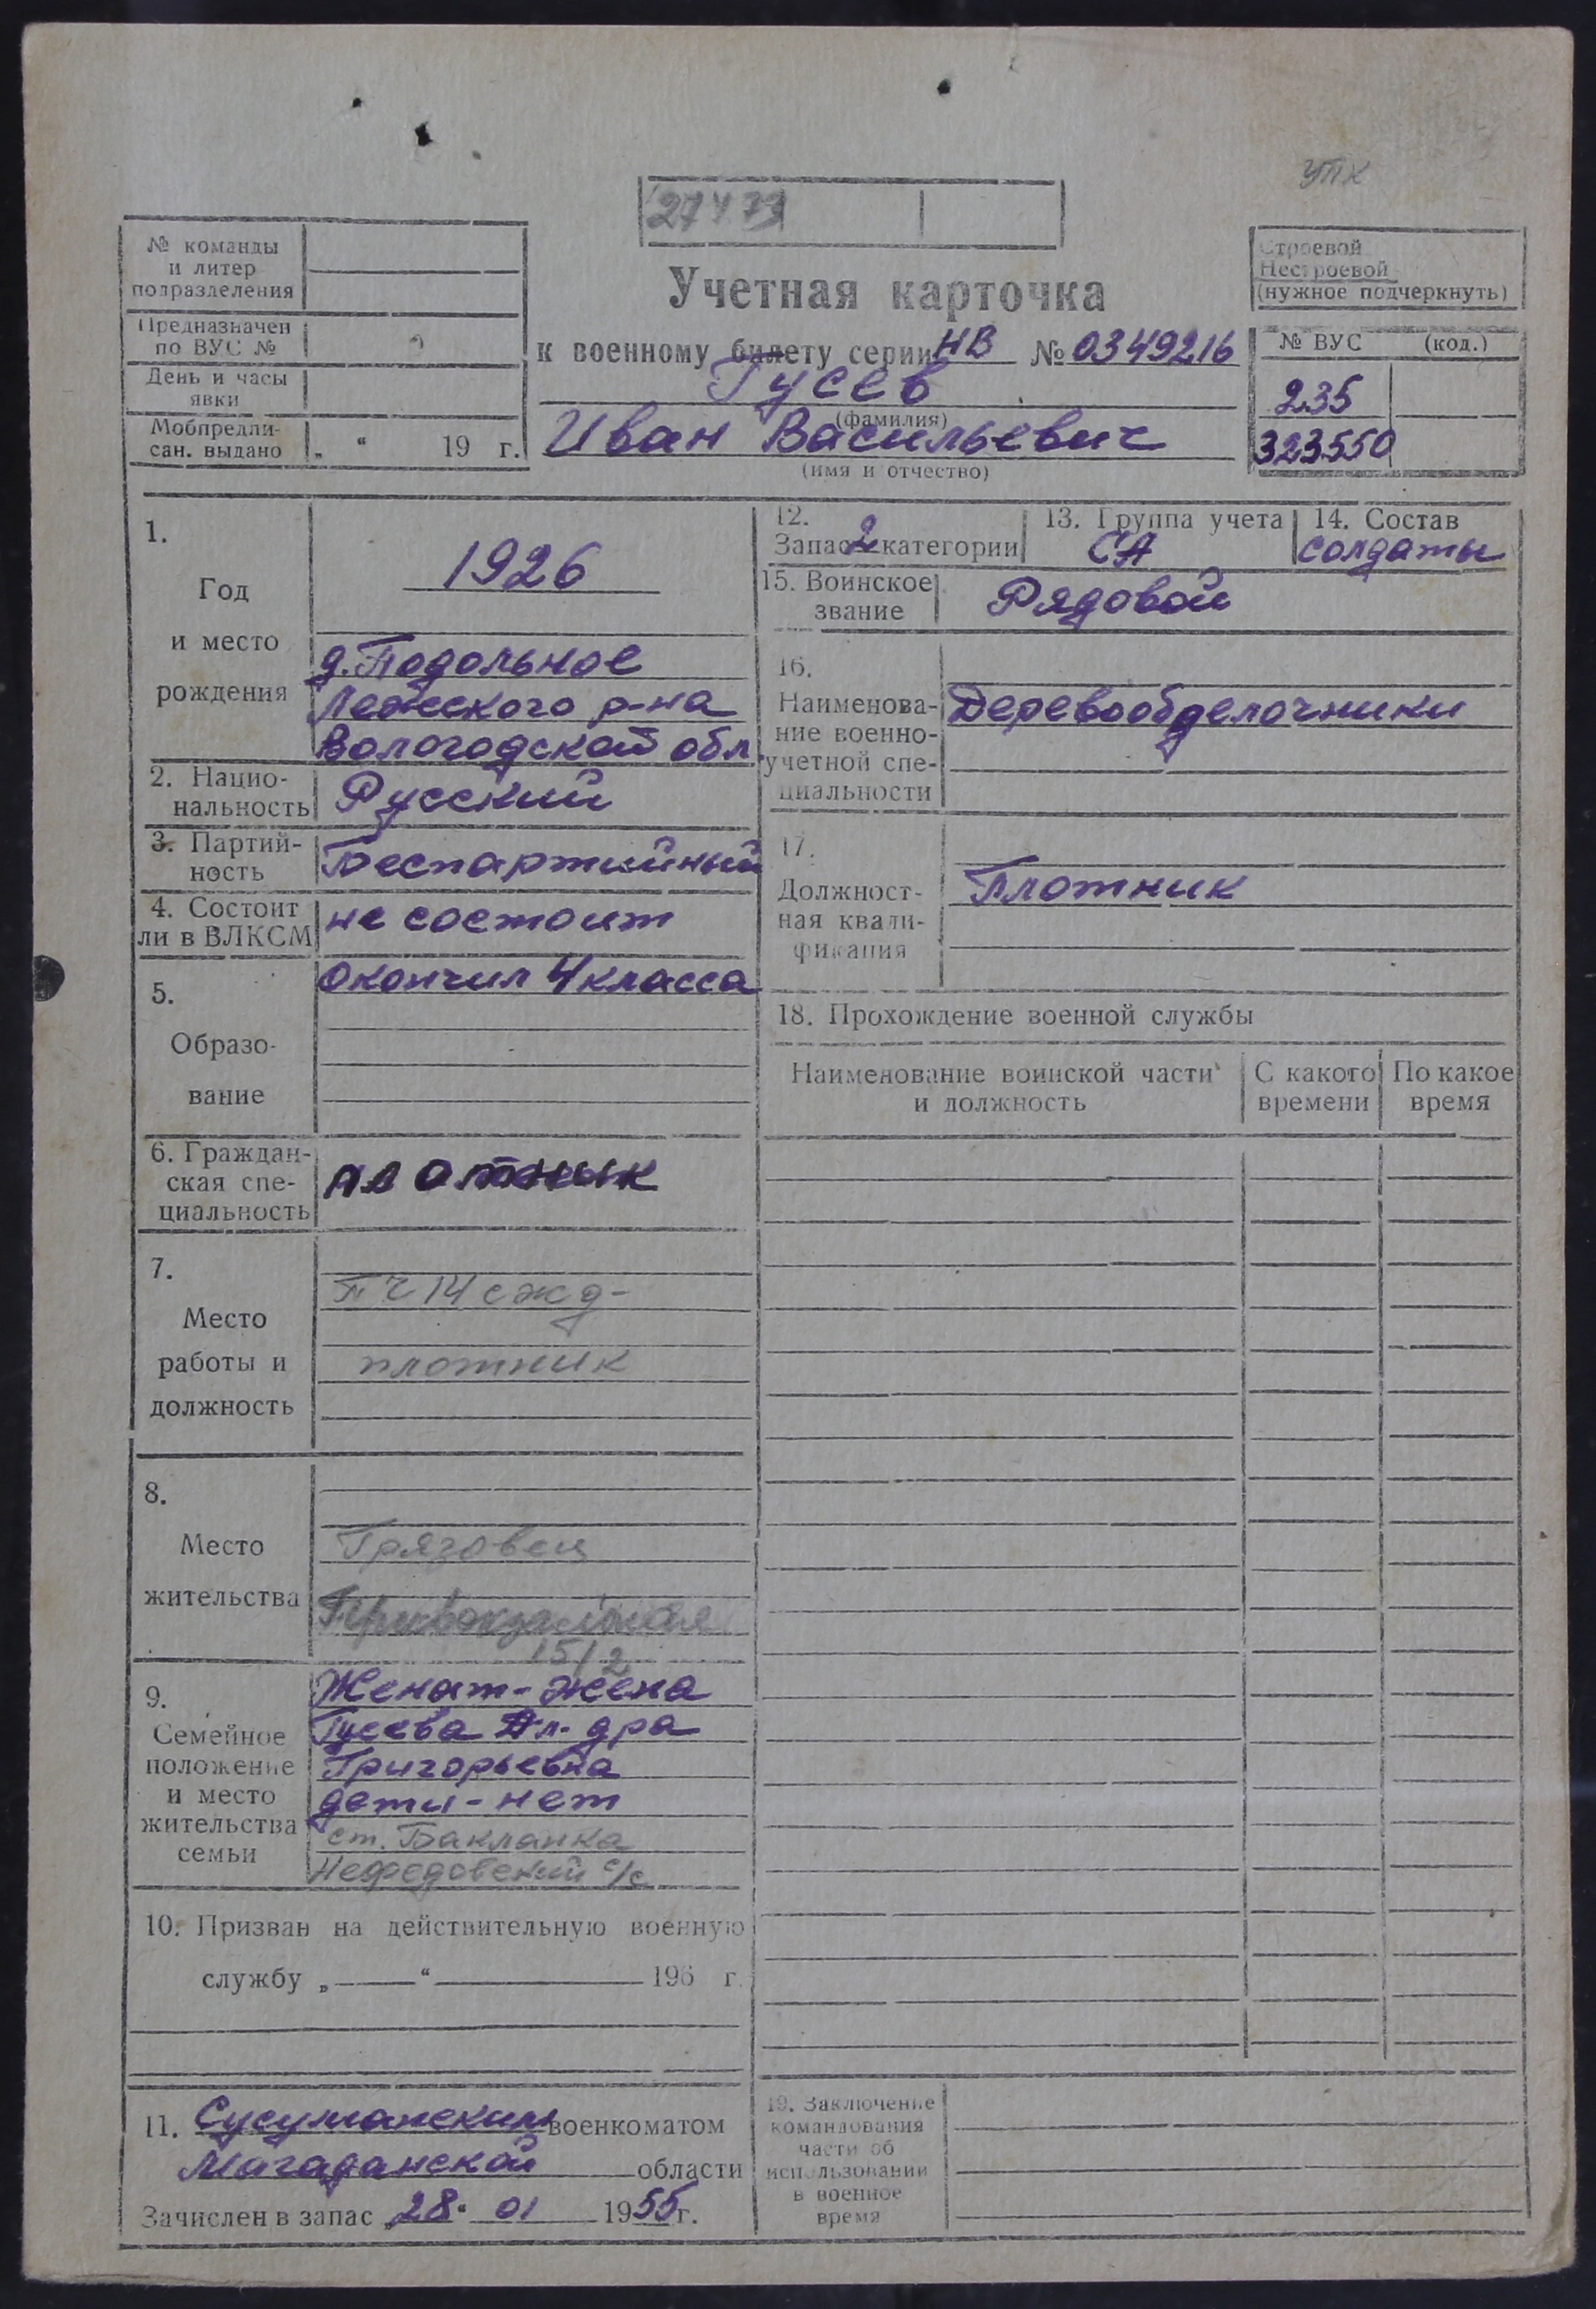 упх
27479
№ команды
и литер
подразделения
Предназначен
по ВУС №
День и часы
явки
Мобпредпи-
сан. выдано „ “ 19 г.
Учетная карточка
к военному билету серии НВ № 0349216
Гусев
(фамилия)
Иван Васильевич
(имя и отчество)
Строевой
Нестроевой
(нужное подчеркнуть)
№ ВУС (код.)
235
323550
1.
Год
и место
рождения
1926
д. Подольное
Лежского р-на
Вологодской обл.
2. Нацио-
нальность
Русский
3. Партий-
ность
Беспартийный
4. Состоит
ли в ВЛКСМ
не состоит
5.
Образо-
вание
окончил 4 класса
6. Граждан-
ская спе-
циальность
плотник
7.
Место
работы и
должность
ПЧ 14 сжд-
плотник
8.
Место
жительства
Грязовец
Привокзальная
15/2
9.
Семейное
положение
и место
жительства
семьи
Женат - жена
Гусева Ал-дра
Григорьевна
дети - нет
ст. Бакланка
Нефедовский с/с
10. Призван на действительную военную
службу „ “ 196 г.
11. Сусуманским военкоматом
Магаданской области
Зачислен в запас 28. 01 1955 г.
12.
Запас 2 категории
13. Группа учета
СА
14. Состав
солдаты
15. Воинское
звание
Рядовой
16.
Наименова-
ние военно-
учетной спе-
циальности
Деревообделочники
17.
Должност-
ная квали-
фикация
Плотник
18. Прохождение военной службы
Наименование воинской части
и должность
С какого
времени
По какое
время
19. Заключение
командования
части об
использовании
в военное
время